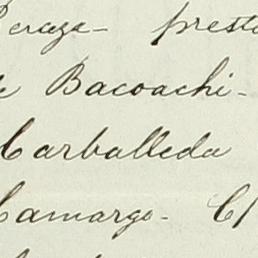 Peraza- prest
Bacoachi-
Carballeda
Camargo-